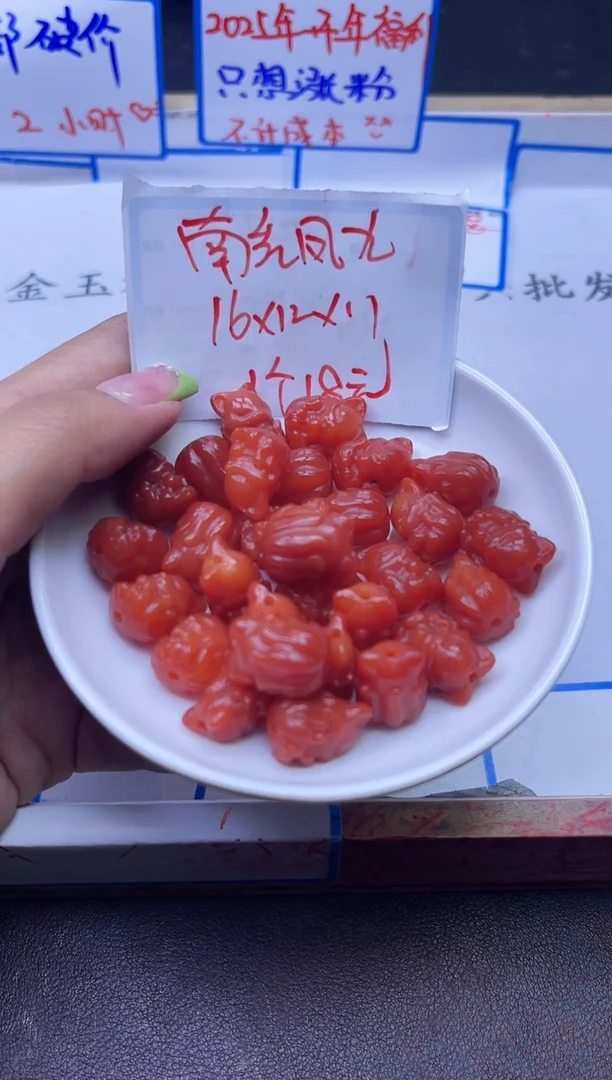 破价
2小时
2025年开年福利
只想涨粉
不计成本
金玉
批发
南红凤九
16x12x11
1个18元